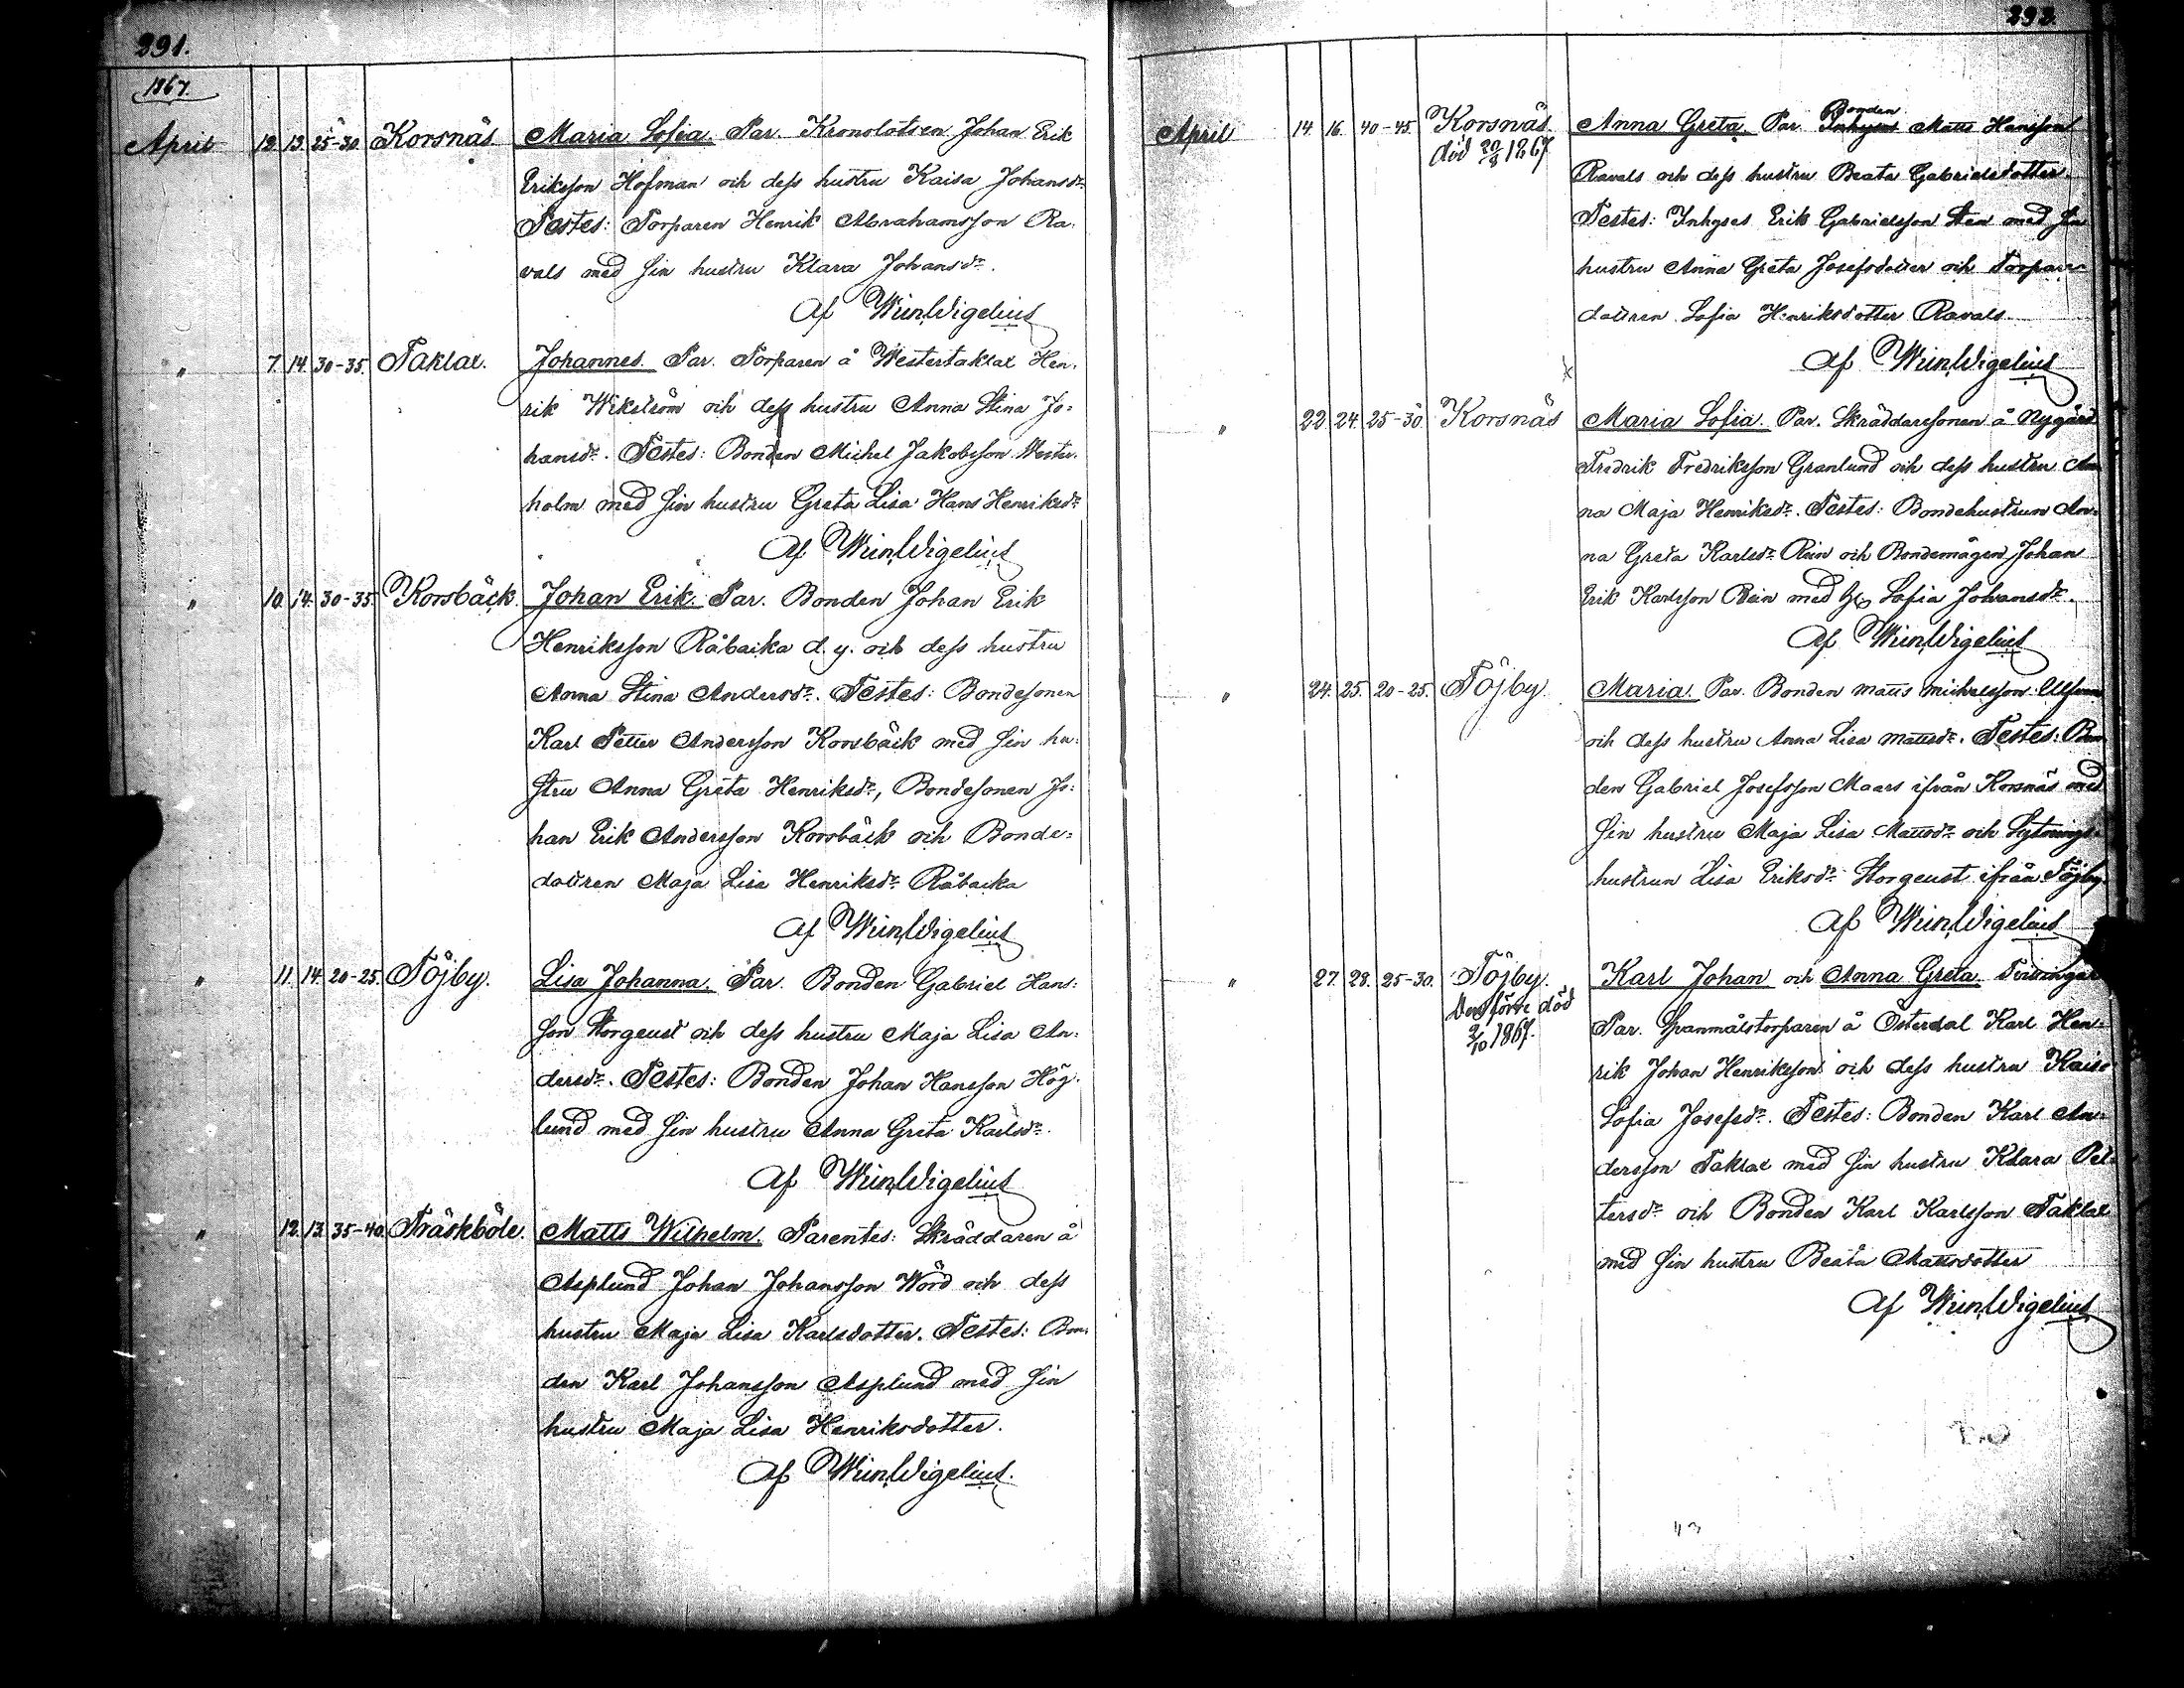 291.
1867.
April 12. 13. 25-30 Korsnäs Maria Sofia. Par. Kronolotsen Johan Erik
Eriksson Hofman och dess hustru Kaisa Johansdr
Testes: Torparen Henrik Abrahamsson Ra-
vals med sin hustru Klara Johansdr.
Af Wigelius
" 7. 14. 30-35. Taklax. Johannes. Par. Torparen å Westertaklax Hen-
rik Wikström och dess hustru Anna Stina Jo-
hansdr. Testes: Bonden Michel Jakobsson Wester-
holm med sin hustru Greta Lisa Hans Henriksdr
Af Wigelius
" 10. 14. 30-35. Korsbäck. Johan Erik. Par. Bonden Johan Erik
Henriksson Råbacka d.y. och dess hustru
Anna Stina Andersdr. Testes: Bondesonen
Karl Petter Andersson Korsbäck med sin hu-
stru Anna Greta Henriksdr, Bondesonen Jo-
han Erik Andersson Korsbäck och Bonde-
dottren Maja Lisa Henriksdr Råbacka
Af Wigelius
" 11. 14. 20-25. Töjby. Lisa Johanna. Par. Bonden Gabriel Hans-
son Storgeust och dess hustru Maja Lisa An-
dersdr. Testes: Bonden Johan Hansson Hög-
lund med sin hustru Anna Greta Karlsdr.
Af Wigelius
" 12. 13. 35-40. Träskböle. Matts Wilhelm. Parentes: Skräddaren å
Asplund Johan Johansson Wörd och dess
hustru Maja Lisa Karlsdotter. Testes: Bon-
den Karl Johansson Asplund med sin
hustru Maja Lisa Henriksdotter.
Af Wigelius.
292.
April 14. 16. 40-45. Korsnäs. Anna Greta. Par. Inhyses Bonden Matts Hansson
död 20/8 1867. Ravals och dess hustru Beata Gabrielsdotter
Testes: Inhyses Erik Gabrielsson Sten med sin
hustru Anna Greta Josefsdotter och Torpare-
dottren Sofia Henriksdotter Ravals.
Af Wigelius
" 22. 24. 25-30. Korsnäs Maria Sofia. Par. Skräddaresonen å Nygård
Fredrik Fredriksson Granlund och dess hustru An-
na Maja Henriksdr. Testes: Bondehustrun An-
na Greta Karlsdr Rein och Bondemågen Johan
Erik Karlsson Rein med Sofia Johansdr.
Af Wigelius
" 24. 25. 20-25. Töjby. Maria. Par. Bonden Matts Michelsson
och dess hustru Anna Lisa Mattsdr. Testes: Bon-
den Gabriel Josefsson Maars ifrån Korsnäs med
sin hustru Maja Lisa Mattsdr och Sytnings-
hustrun Lisa Eriksdr Storgeust ifrån Töjby.
Af Wigelius
" 27. 28. 25-30. Töjby. Karl Johan och Anna Greta. Tvillingar
Den förre död Par. Spanmålstorparen å Österdal Karl Hen-
2/10 1867. rik Johan Henriksson och dess hustru Kaisa
Sofia Josefsdr. Testes: Bonden Karl An-
dersson Taklax med sin hustru Klara Pet-
tersdr och Bonden Karl Karlsson Taklax
med sin hustru Beata Mattsdotter
Af Wigelius